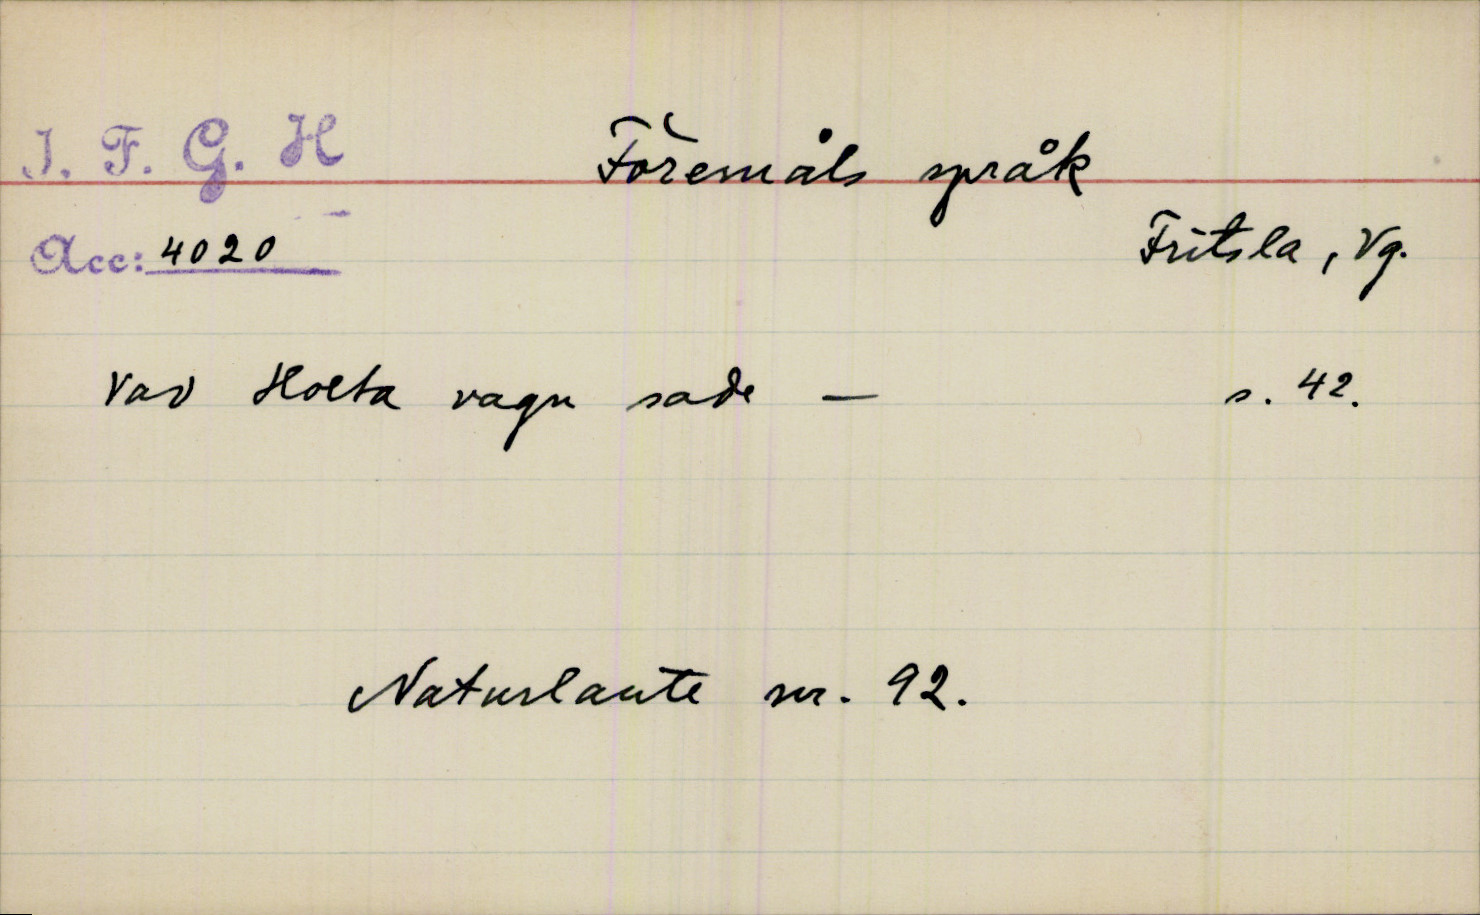 I. F. G. H
Föremåls språk
Acc: 4020
Fritsla, Vg.
Vad Holta vagn sade — s. 42.
Naturlaute nr. 92.